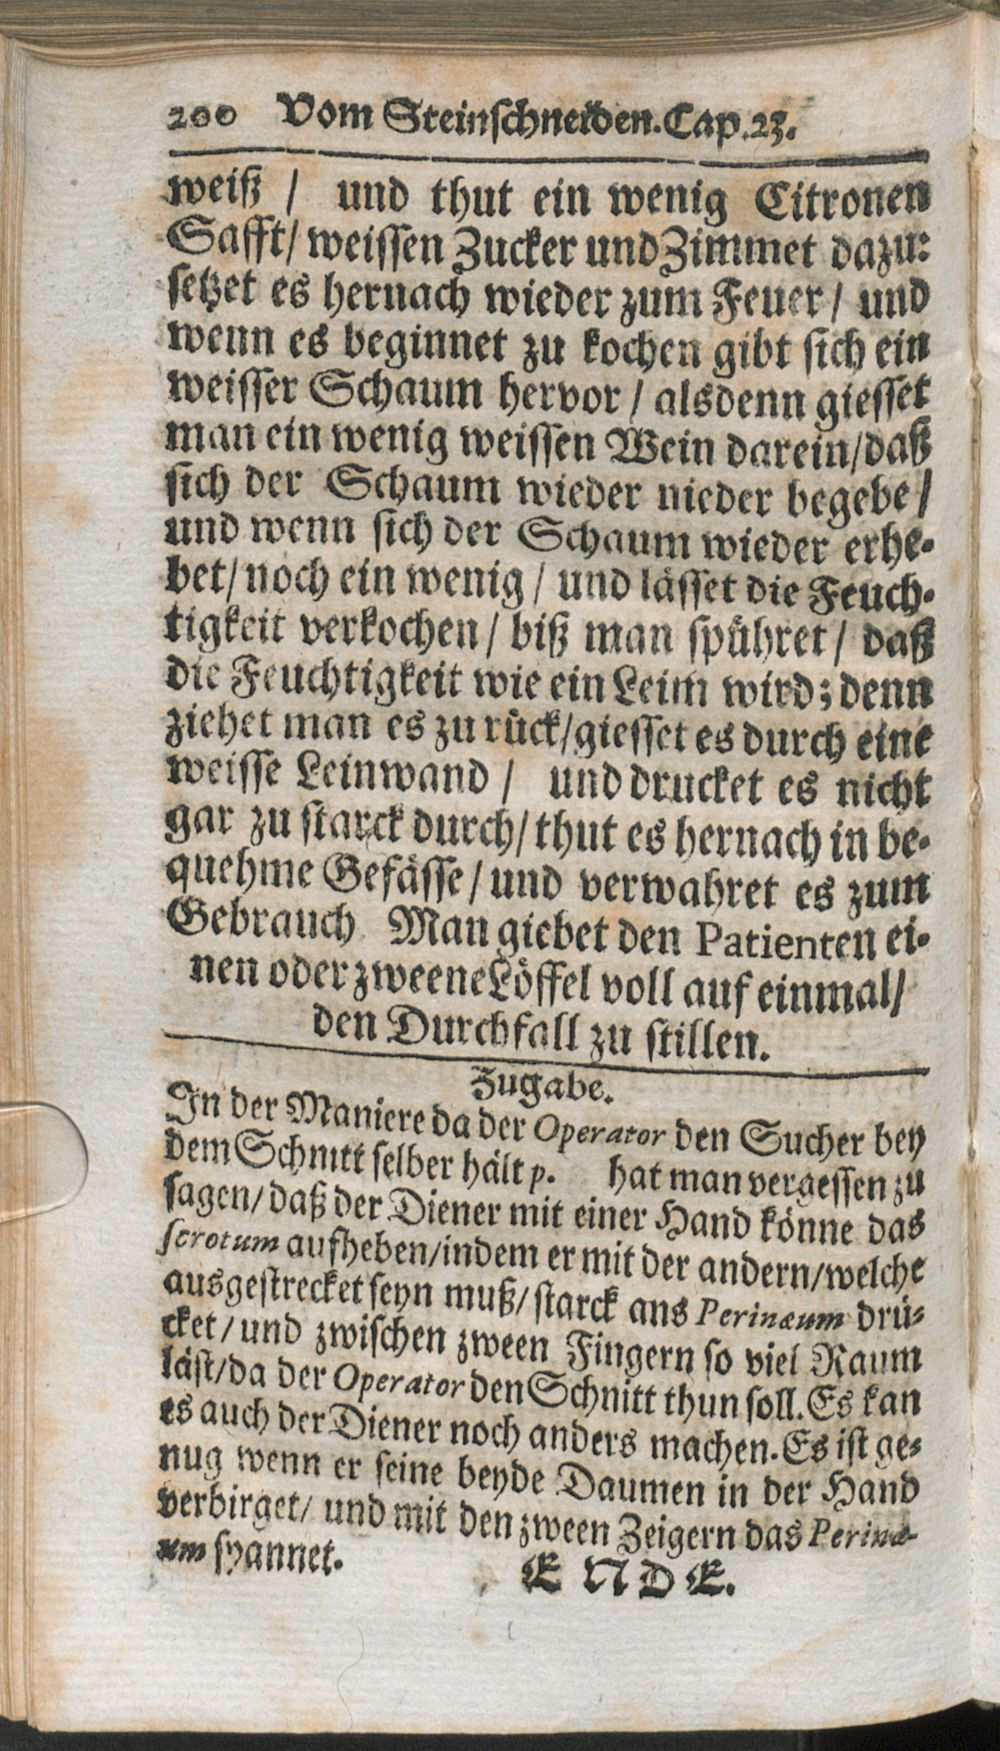 200 Vom Steinschneiden. Cap. 23.
weiß / und thut ein wenig Citronen
Safft / weissen Zucker und Zimmet dazu:
setzet es hernach wieder zum Feuer / und
wenn es beginnet zu kochen gibt sich ein
weisser Schaum hervor / alsdenn giesset
man ein wenig weissen Wein darein / daß
sich der Schaum wieder nieder begebe /
und wenn sich der Schaum wieder erhe-
bet / noch ein wenig / und lässet die Feuch-
tigkeit verkochen / biß man spühret / daß
die Feuchtigkeit wie ein Leim wird; denn
ziehet man es zu rück / giesset es durch eine
weisse Leinwand / und drucket es nicht
gar zu starck durch / thut es hernach in be-
quehme Gefässe / und verwahret es zum
Gebrauch Man giebet den Patienten ei-
nen oder zweene Löffel voll auf einmal /
den Durchfall zu stillen.
Zugabe.
In der Maniere da der Operator den Sucher bey
dem Schnitt selber hält p. hat man vergessen zu
sagen / daß der Diener mit einer Hand könne das
scrotum aufheben / indem er mit der andern / welche
ausgestrecket seyn muß / starck ans Perinæum drü-
cket / und zwischen zween Fingern so viel Raum
läst / da der Operator den Schnitt thun soll. Es kan
es auch der Diener noch anders machen. Es ist ge-
nug wenn er seine beyde Daumen in der Hand
verbirget / und mit den zween Zeigern das Perinæ-
um spannet.
ENDE.